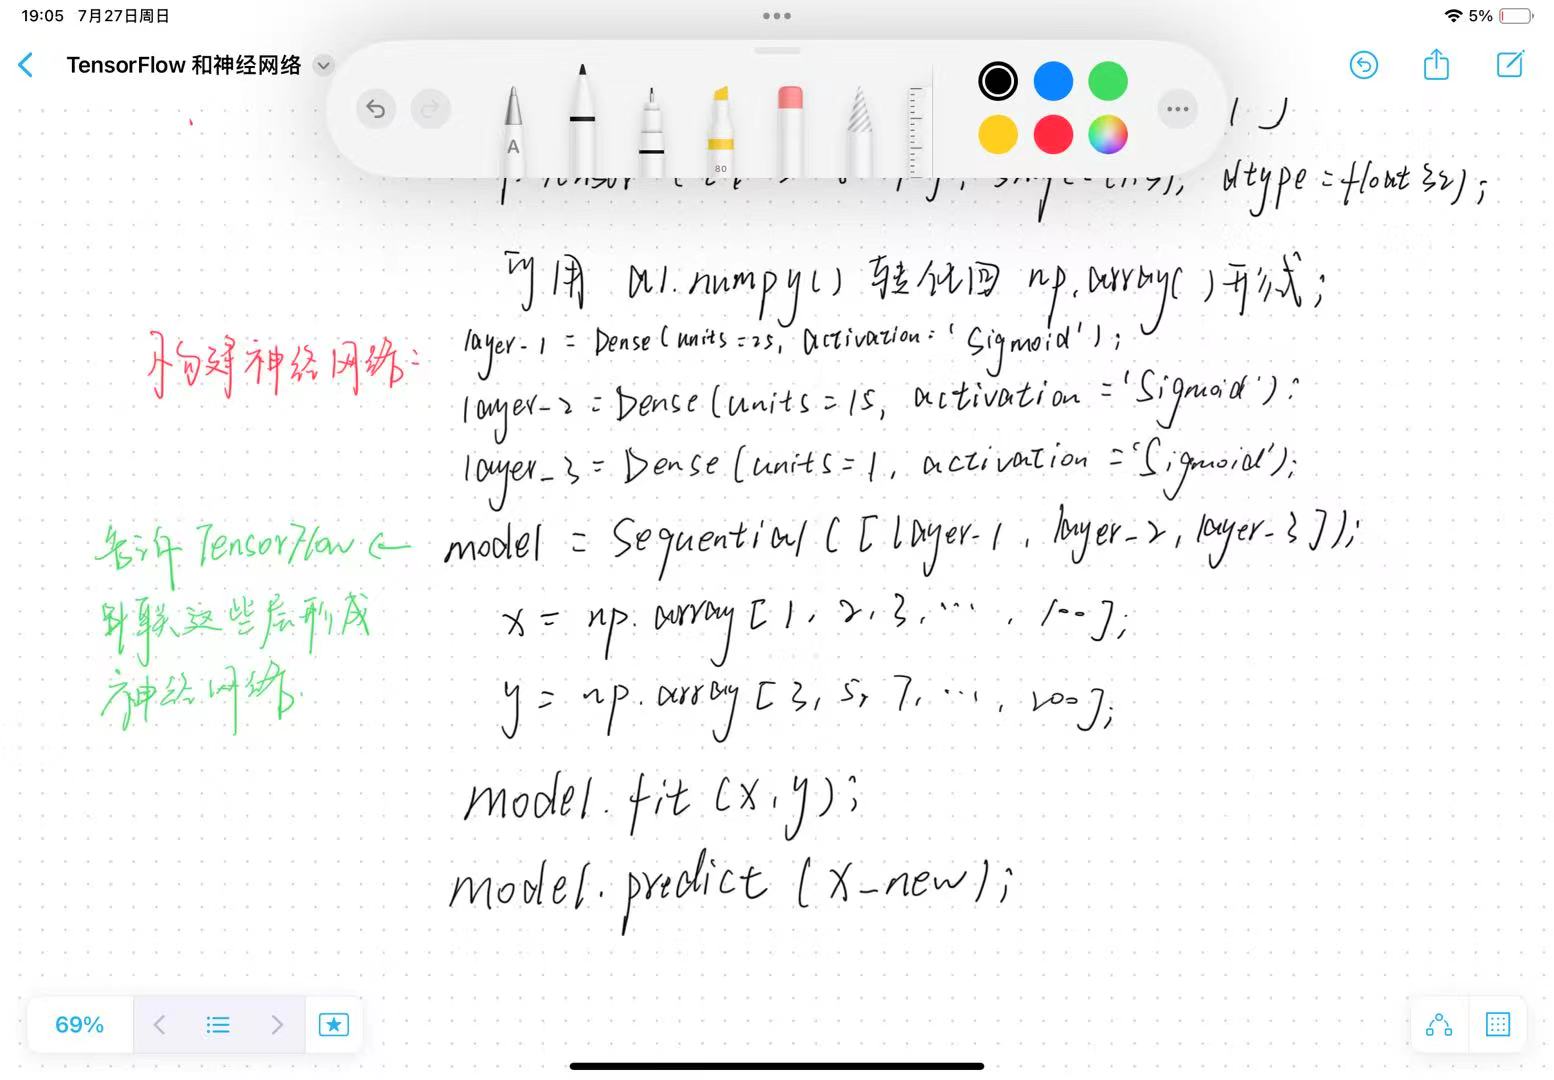 19:05 7月27日周日
5%
TensorFlow 和神经网络
A
80
dtype=float32);
可用 a1.numpy() 转化回 np.array() 形式;
构建神经网络:
layer-1 = Dense(units=25, activation='Sigmoid');
layer-2 = Dense(units=15, activation='Sigmoid');
layer_3 = Dense(units=1, activation='Sigmoid');
model = Sequential([layer-1, layer-2, layer-3]);
告诉TensorFlow ←
串联这些层形成
神经网络.
x = np.array[1, 2, 3, ..., 100];
y = np.array[3, 5, 7, ..., 200];
model.fit(x,y);
model.predict(x_new);
69%